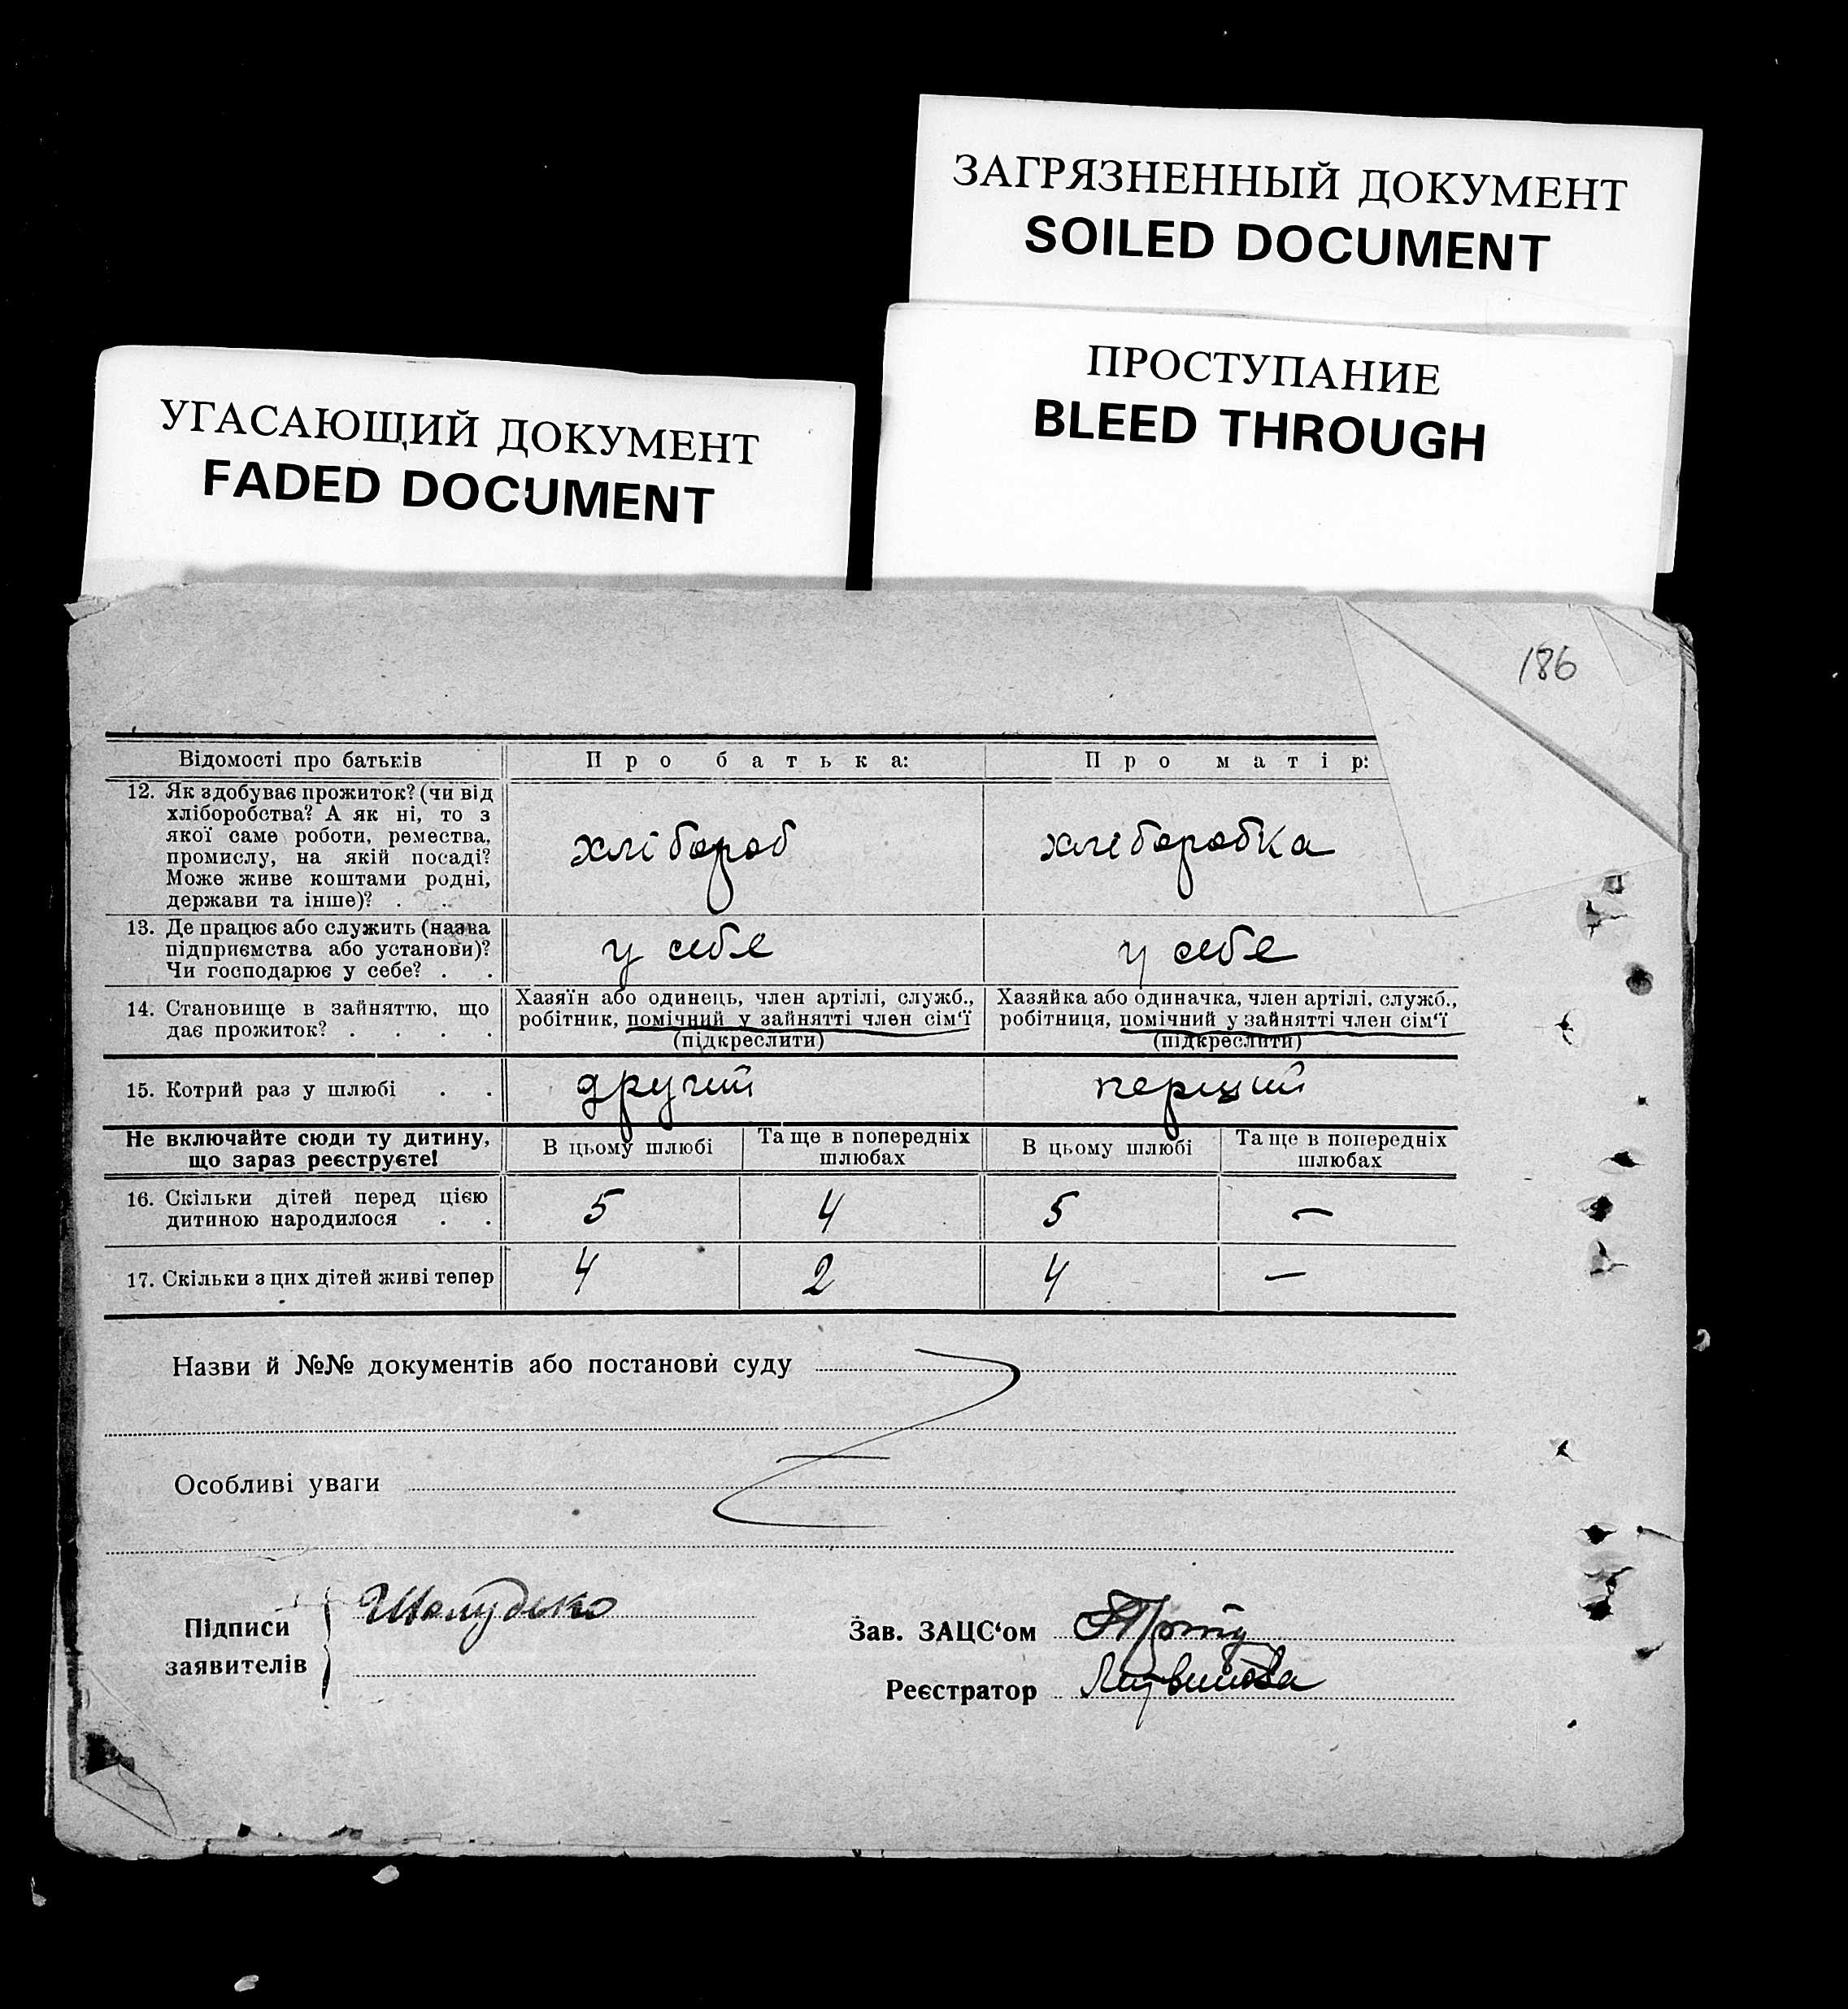 ЗАГРЯЗНЕННЫЙ ДОКУМЕНТ
SOILED DOCUMENT
ПРОСТУПАНИЕ
BLEED THROUGH
УГАСАЮЩИЙ ДОКУМЕНТ
FADED DOCUMENT
186
Відомості про батьків Про батька: Про матір:
12. Як здобуває прожиток? (чи від
хліборобства? А як ні, то з
якої саме роботи, ремества,
промислу, на якій посаді?
Може живе коштами родні,
держави та інше)? . ..
хлібороб хліборобка
13. Де працює або служить (назва
підприємства або установи)?
Чи господарює у себе? . .
у себе у себе
14. Становище в зайняттю, що
дає прожиток? . . . .
Хазяїн або одинець, член артілі, служб.,
робітник, помічний у зайнятті член сім'ї
(підкреслити)
Хазяйка або одиначка, член артілі, служб.,
робітниця, помічний у зайнятті член сім'ї
(підкреслити)
15. Котрий раз у шлюбі . . другий перший
Не включайте сюди ту дитину,
що зараз реєструєте!
В цьому шлюбі
Та ще в попередніх
шлюбах
В цьому шлюбі
Та ще в попередніх
шлюбах
16. Скільки дітей перед цією
дитиною народилося . .
5 4 5 —
17. Скільки з цих дітей живі тепер 4 2 4 —
Назви й №№ документів або постанови суду
Особливі уваги
Підписи
заявителів
Шолудько
Зав. ЗАЦС'ом
Реєстратор Литвинова